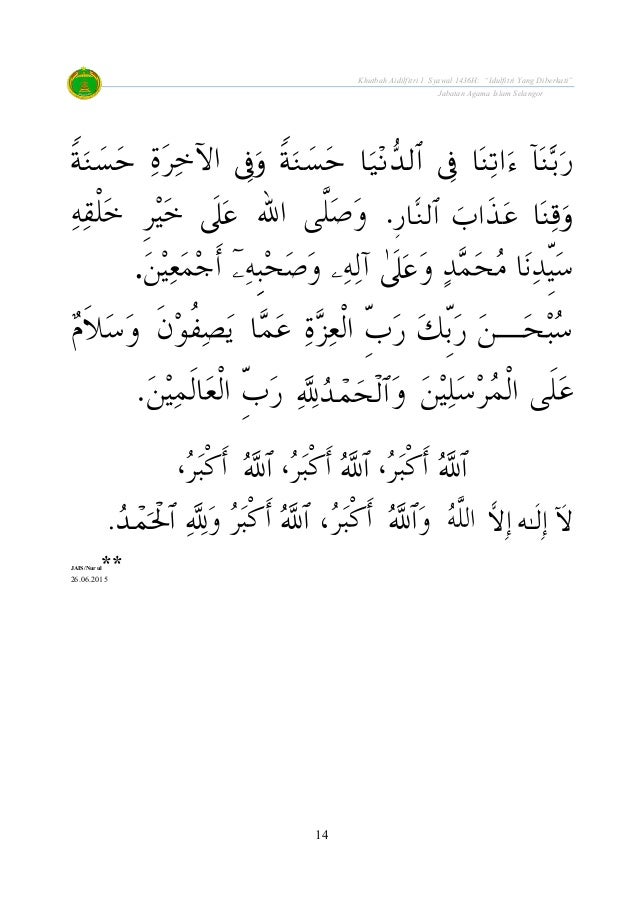 Khutbah Aidilfitri 1 Syawal 1436H: "Idulfitri Yang Diberkati"
Jabatan Agama Islam Selangor
رَبَّنَآ ءَاتِنَا فِى ٱلدُّنْيَا حَسَنَةً وَفِى الآخِرَةِ حَسَنَةً
وَقِنَا عَذَابَ ٱلنَّارِ. وَصَلَّى الله عَلَى خَيْرِ خَلْقِهِ
سَيِّدِنَا مُحَمَّدٍ وَعَلَىٰٓ آلِهِۦ وَصَحْبِهِۦٓ أَجْمَعِيْنَ.
سُبْحَـــنَ رَبِّكَ رَبِّ الْعِزَّةِ عَمَّا يَصِفُوْنَ وَسَلاَمٌ
عَلَى الْمُرْسَلِيْنَ وَٱلْحَمْدُلِلَّهِ رَبِّ الْعَالَمِيْنَ.
ٱللَّهُ أَكْبَرُ، ٱللَّهُ أَكْبَرُ، ٱللَّهُ أَكْبَرُ،
لآ إِلَـٰه إِلاَّ اللَّهُ وَٱللَّهُ أَكْبَرُ، ٱللَّهُ أَكْبَرُ وَلِلَّهِ ٱلْحَمْدُ.
JAIS/Nurul**
26.06.2015
14